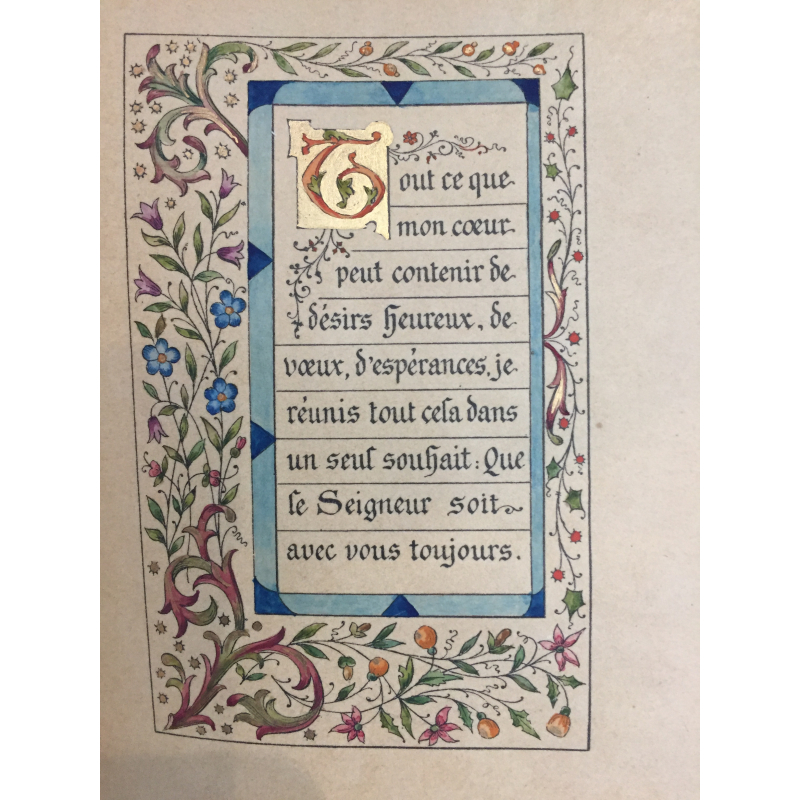 Tout ce que
mon cœur
peut contenir de
désirs heureux, de
vœux, d'espérances, je
réunis tout cela dans
un seul souhait : Que
le Seigneur soit
avec vous toujours.